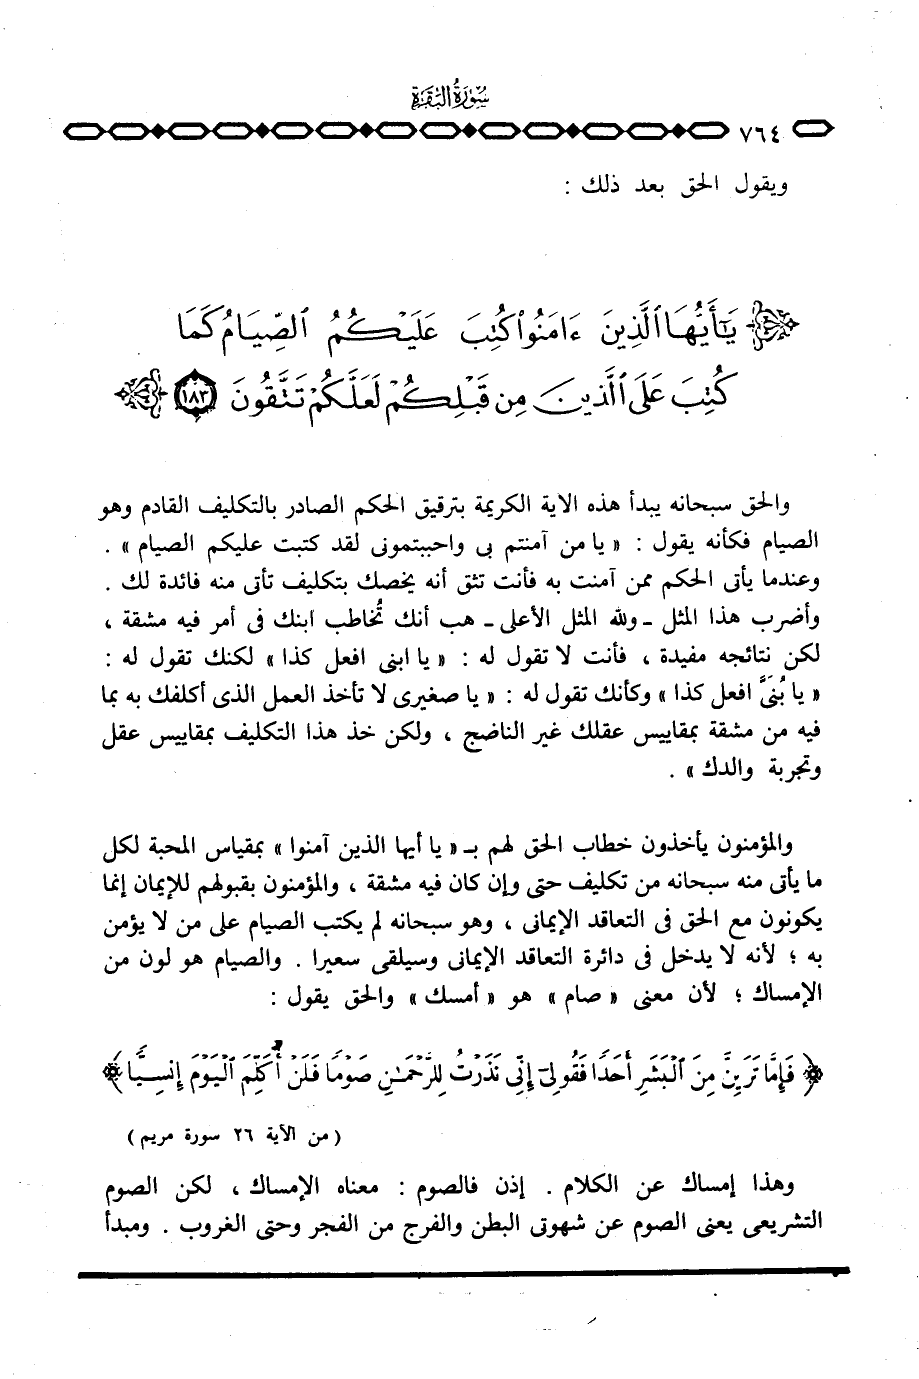 سُورَةُ البَقَرَةِ
٧٦٤
ويقول الحق بعد ذلك :
يَٰٓأَيُّهَا ٱلَّذِينَ ءَامَنُوا۟ كُتِبَ عَلَيْكُمُ ٱلصِّيَامُ كَمَا
كُتِبَ عَلَى ٱلَّذِينَ مِن قَبْلِكُمْ لَعَلَّكُمْ تَتَّقُونَ ١٨٣
والحق سبحانه يبدأ هذه الاية الكريمة بترقيق الحكم الصادر بالتكليف القادم وهو
الصيام فكأنه يقول : « يا من آمنتم بى واحببتمونى لقد كتبت عليكم الصيام » .
وعندما يأتى الحكم ممن آمنت به فأنت تثق أنه يخصك بتكليف تأتى منه فائدة لك .
وأضرب هذا المثل ـ ولله المثل الأعلى ـ هب أنك تُخاطب ابنك فى أمر فيه مشقة ،
لكن نتائجه مفيدة ، فأنت لا تقول له : « يا ابنى افعل كذا » لكنك تقول له :
« يا بُنَىَّ افعل كذا » وكأنك تقول له : « يا صغيرى لا تأخذ العمل الذى أكلفك به بما
فيه من مشقة بمقاييس عقلك غير الناضج ، ولكن خذ هذا التكليف بمقاييس عقل
وتجربة والدك » .
والمؤمنون يأخذون خطاب الحق لهم بـ « يا أيها الذين آمنوا » بمقياس المحبة لكل
ما يأتى منه سبحانه من تكليف حتى وإن كان فيه مشقة ، والمؤمنون بقبولهم للإيمان إنما
يكونون مع الحق فى التعاقد الإيمانى ، وهو سبحانه لم يكتب الصيام على من لا يؤمن
به ؛ لأنه لا يدخل فى دائرة التعاقد الإيمانى وسيلقى سعيرا . والصيام هو لون من
الإمساك ؛ لأن معنى « صام » هو « أمسك » والحق يقول :
﴿ فَإِمَّا تَرَيِنَّ مِنَ ٱلْبَشَرِ أَحَدًا فَقُولِىٓ إِنِّى نَذَرْتُ لِلرَّحْمَٰنِ صَوْمًا فَلَنْ أُكَلِّمَ ٱلْيَوْمَ إِنسِيًّا ﴾
( من الآية ٢٦ سورة مريم )
وهذا إمساك عن الكلام . إذن فالصوم : معناه الإمساك ، لكن الصوم
التشريعى يعنى الصوم عن شهوتى البطن والفرج من الفجر وحتى الغروب . ومبدأ